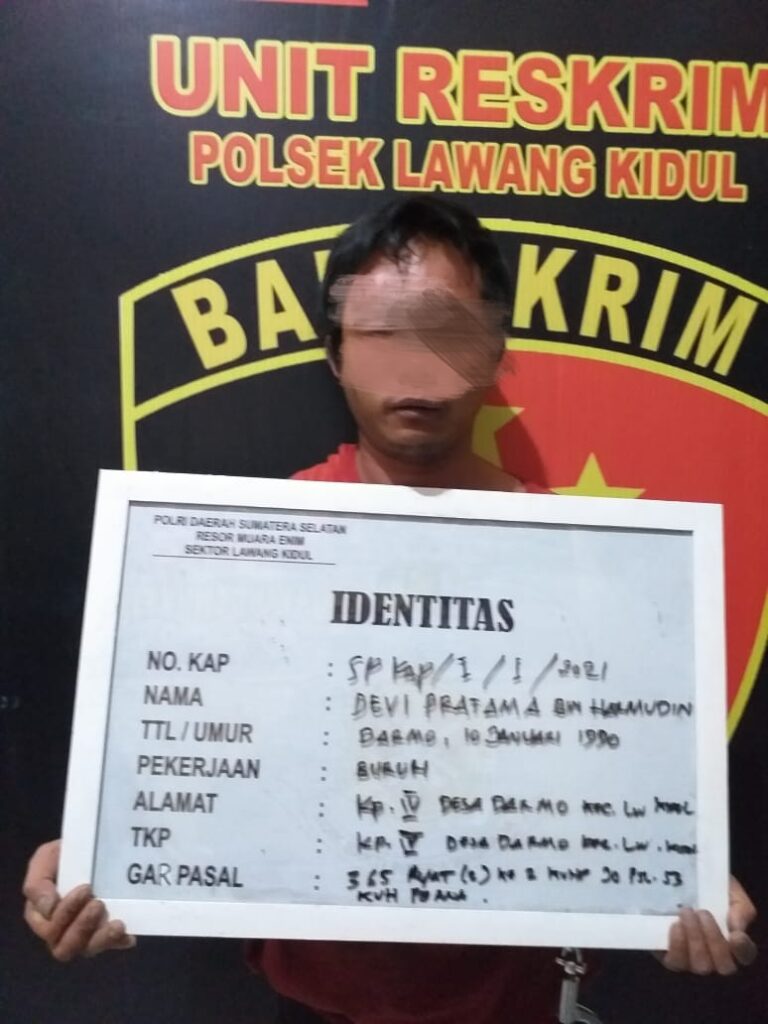 UNIT RESKRIM
POLSEK LAWANG KIDUL
BA KRIM
POLRI DAERAH SUMATERA SELATAN
RESOR MUARA ENIM
SEKTOR LAWANG KIDUL
IDENTITAS
NO. KAP : SP Kap / I / I / 2021
NAMA : DEVI PRATAMA BIN HARMUDIN
TTL / UMUR : DARMO, 10 JANUARI 1990
PEKERJAAN : BURUH
ALAMAT : Kp. IV DESA DARMO KEC. LW
TKP : KP. V DESA DARMO KEC. LW.
GAR PASAL : 365 Ayat (2) ke 2 KUHP Jo PSL. 53
KUH PIDANA.